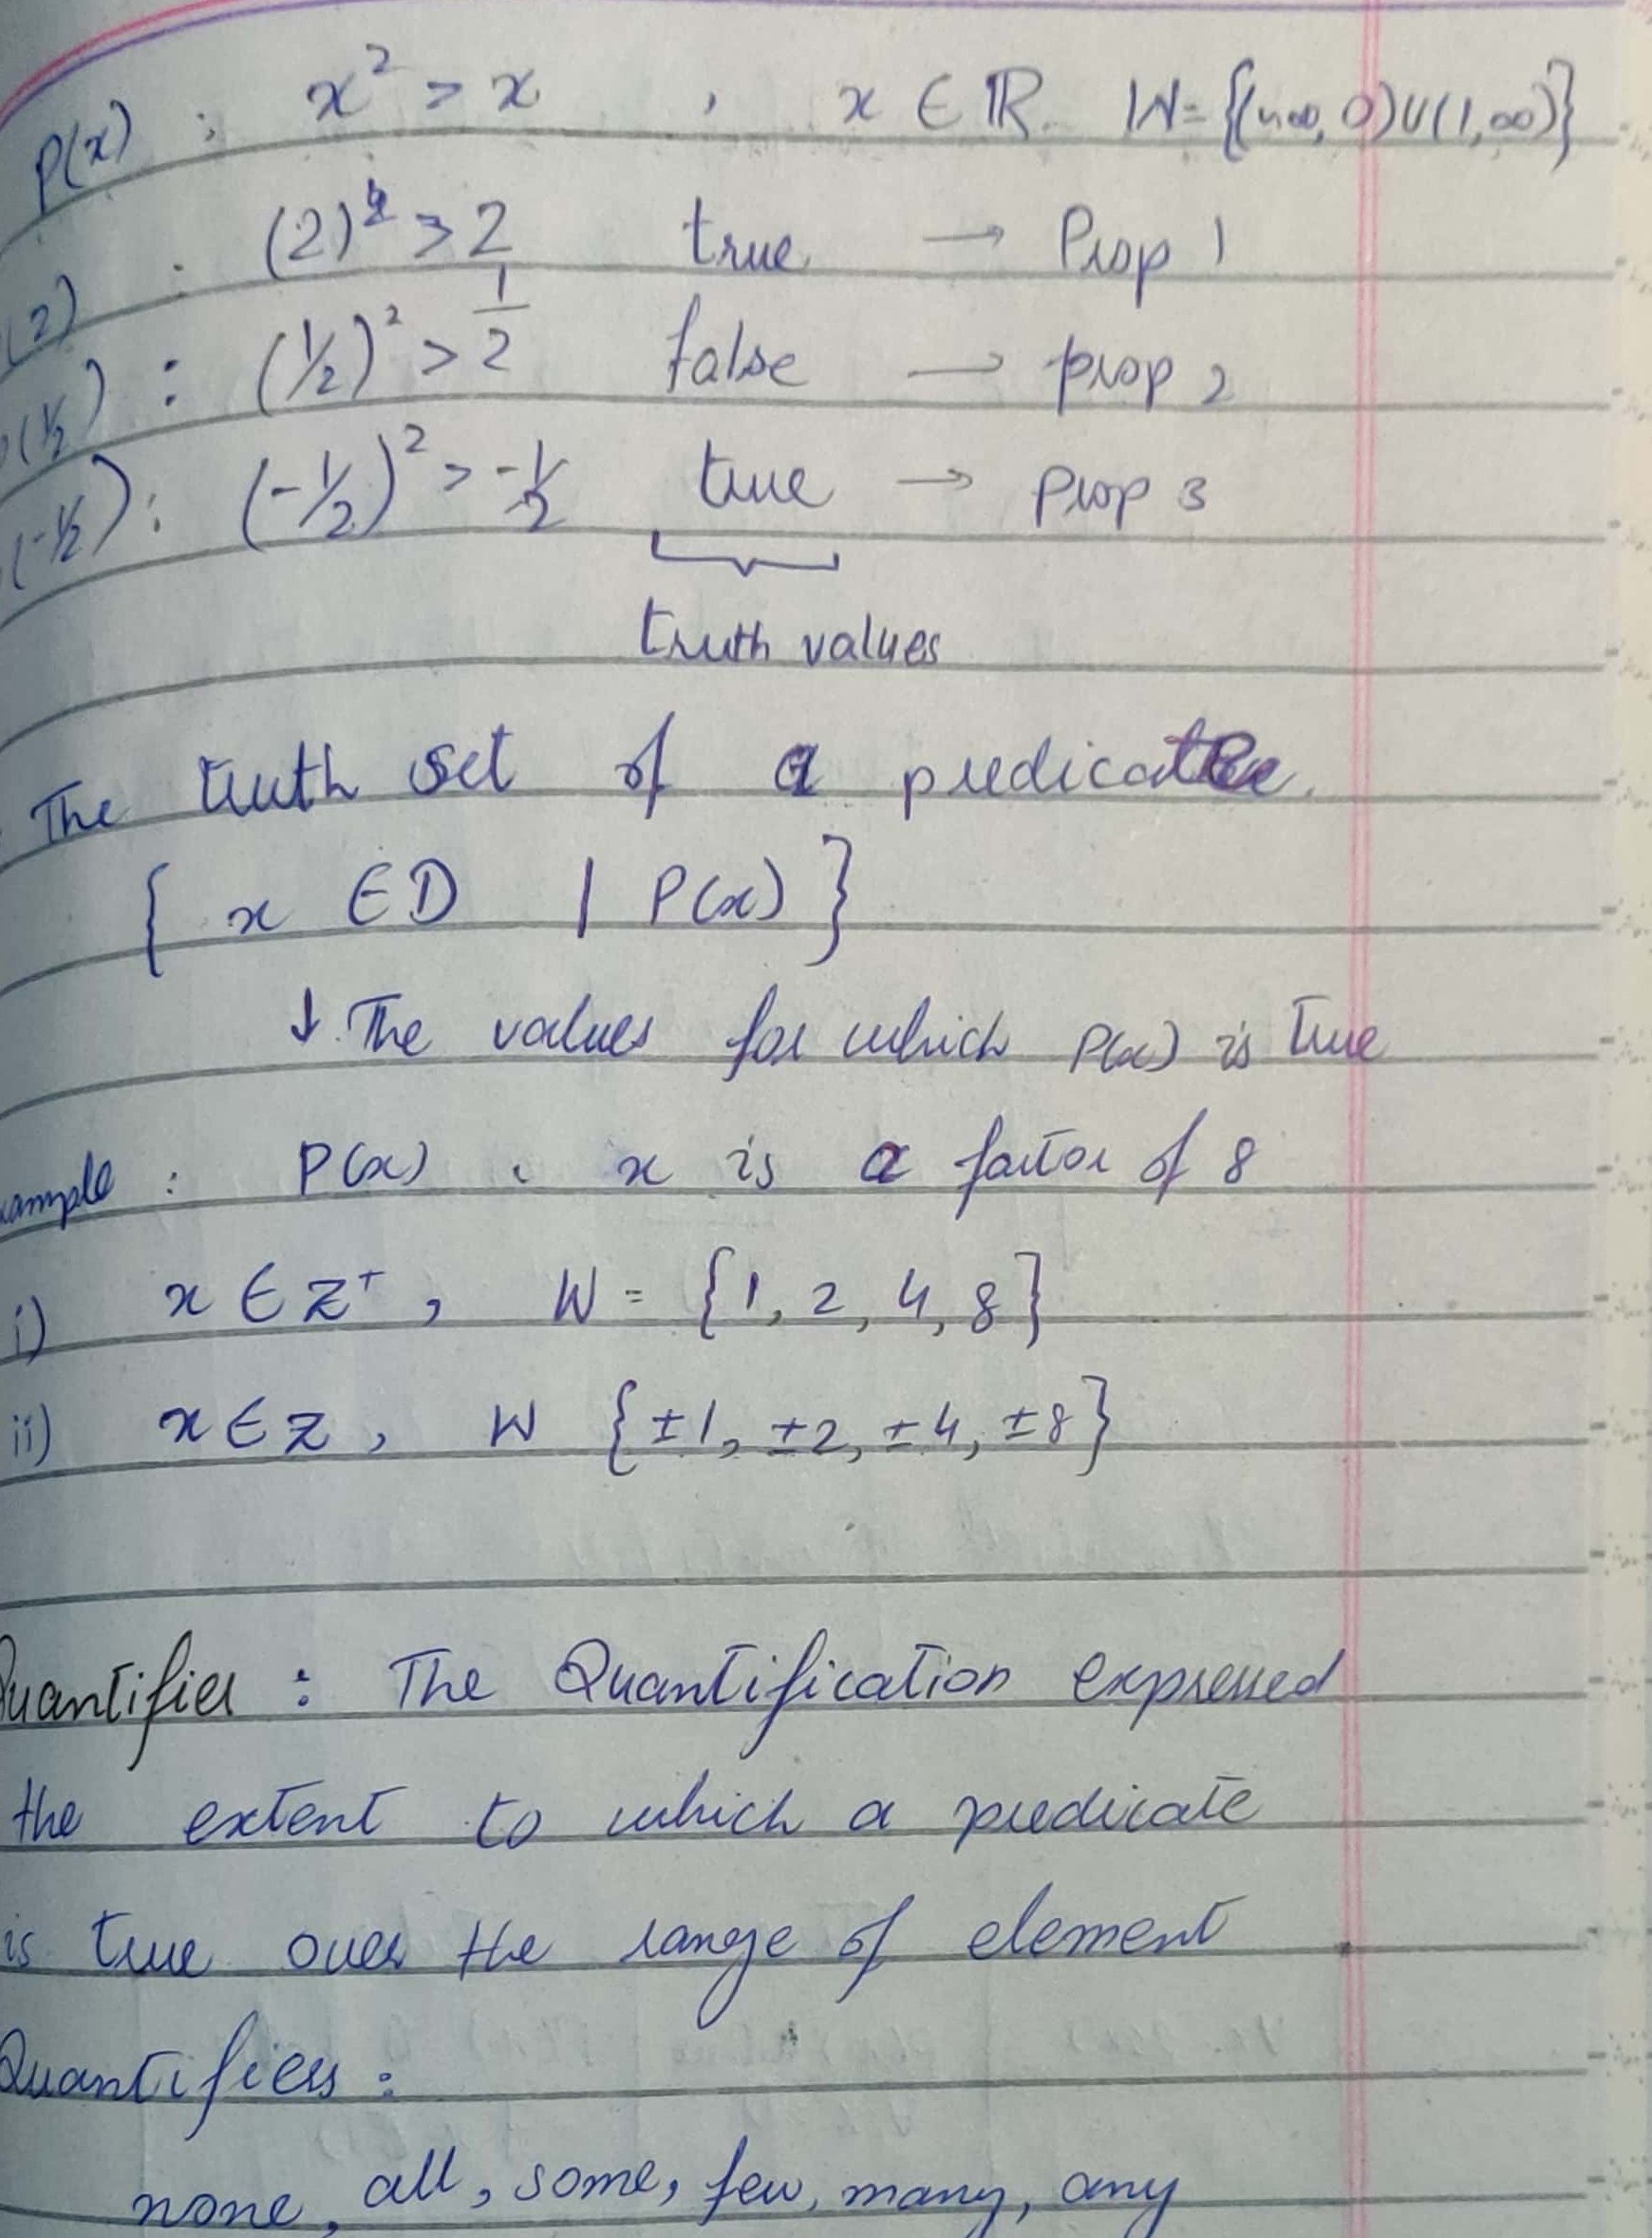 P(x) : x² > x , x ∈ ℝ. W = {(-∞, 0) ∪ (1, ∞)}
(2) : (2)² > 2 true → Prop 1
(½) : (½)² > 1/2 false → prop 2
(-½) : (-½)² > -½ true → Prop 3
truth values
The truth set of a predicate.
{ x ∈ D | P(x) }
↓ The values for which P(x) is true
xample : P(x) : x is a factor of 8
i) x ∈ Z⁺, W = {1, 2, 4, 8}
ii) x ∈ Z, W {±1, ±2, ±4, ±8}
Quantifier : The Quantification expressed
the extent to which a predicate
is true over the range of element
Quantifiers :
none, all, some, few, many, any